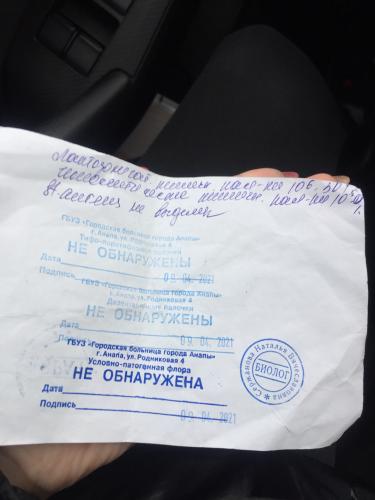 Лактозонегат. кишечн. палочки 10 6. 50%
типические кишечн. палочки 10 50%
St aureus не выделен
ГБУЗ «Городская больница города Анапы»
г. Анапа, ул. Родниковая 4
Тифо-паратифозные
НЕ ОБНАРУЖЕНЫ
Дата 09 04. 2021
Подпись
ГБУЗ «Городская больница города Анапы»
г. Анапа, ул. Родниковая 4
Дизентерийные палочки
НЕ ОБНАРУЖЕНЫ
Дата
Подпись 09. 04. 2021
ГБУЗ «Городская больница города Анапы»
г. Анапа, ул. Родниковая 4
Условно-патогенная флора
НЕ ОБНАРУЖЕНА
Дата
Подпись 09 04. 2021
Наталья Вячеславовна
БИОЛОГ